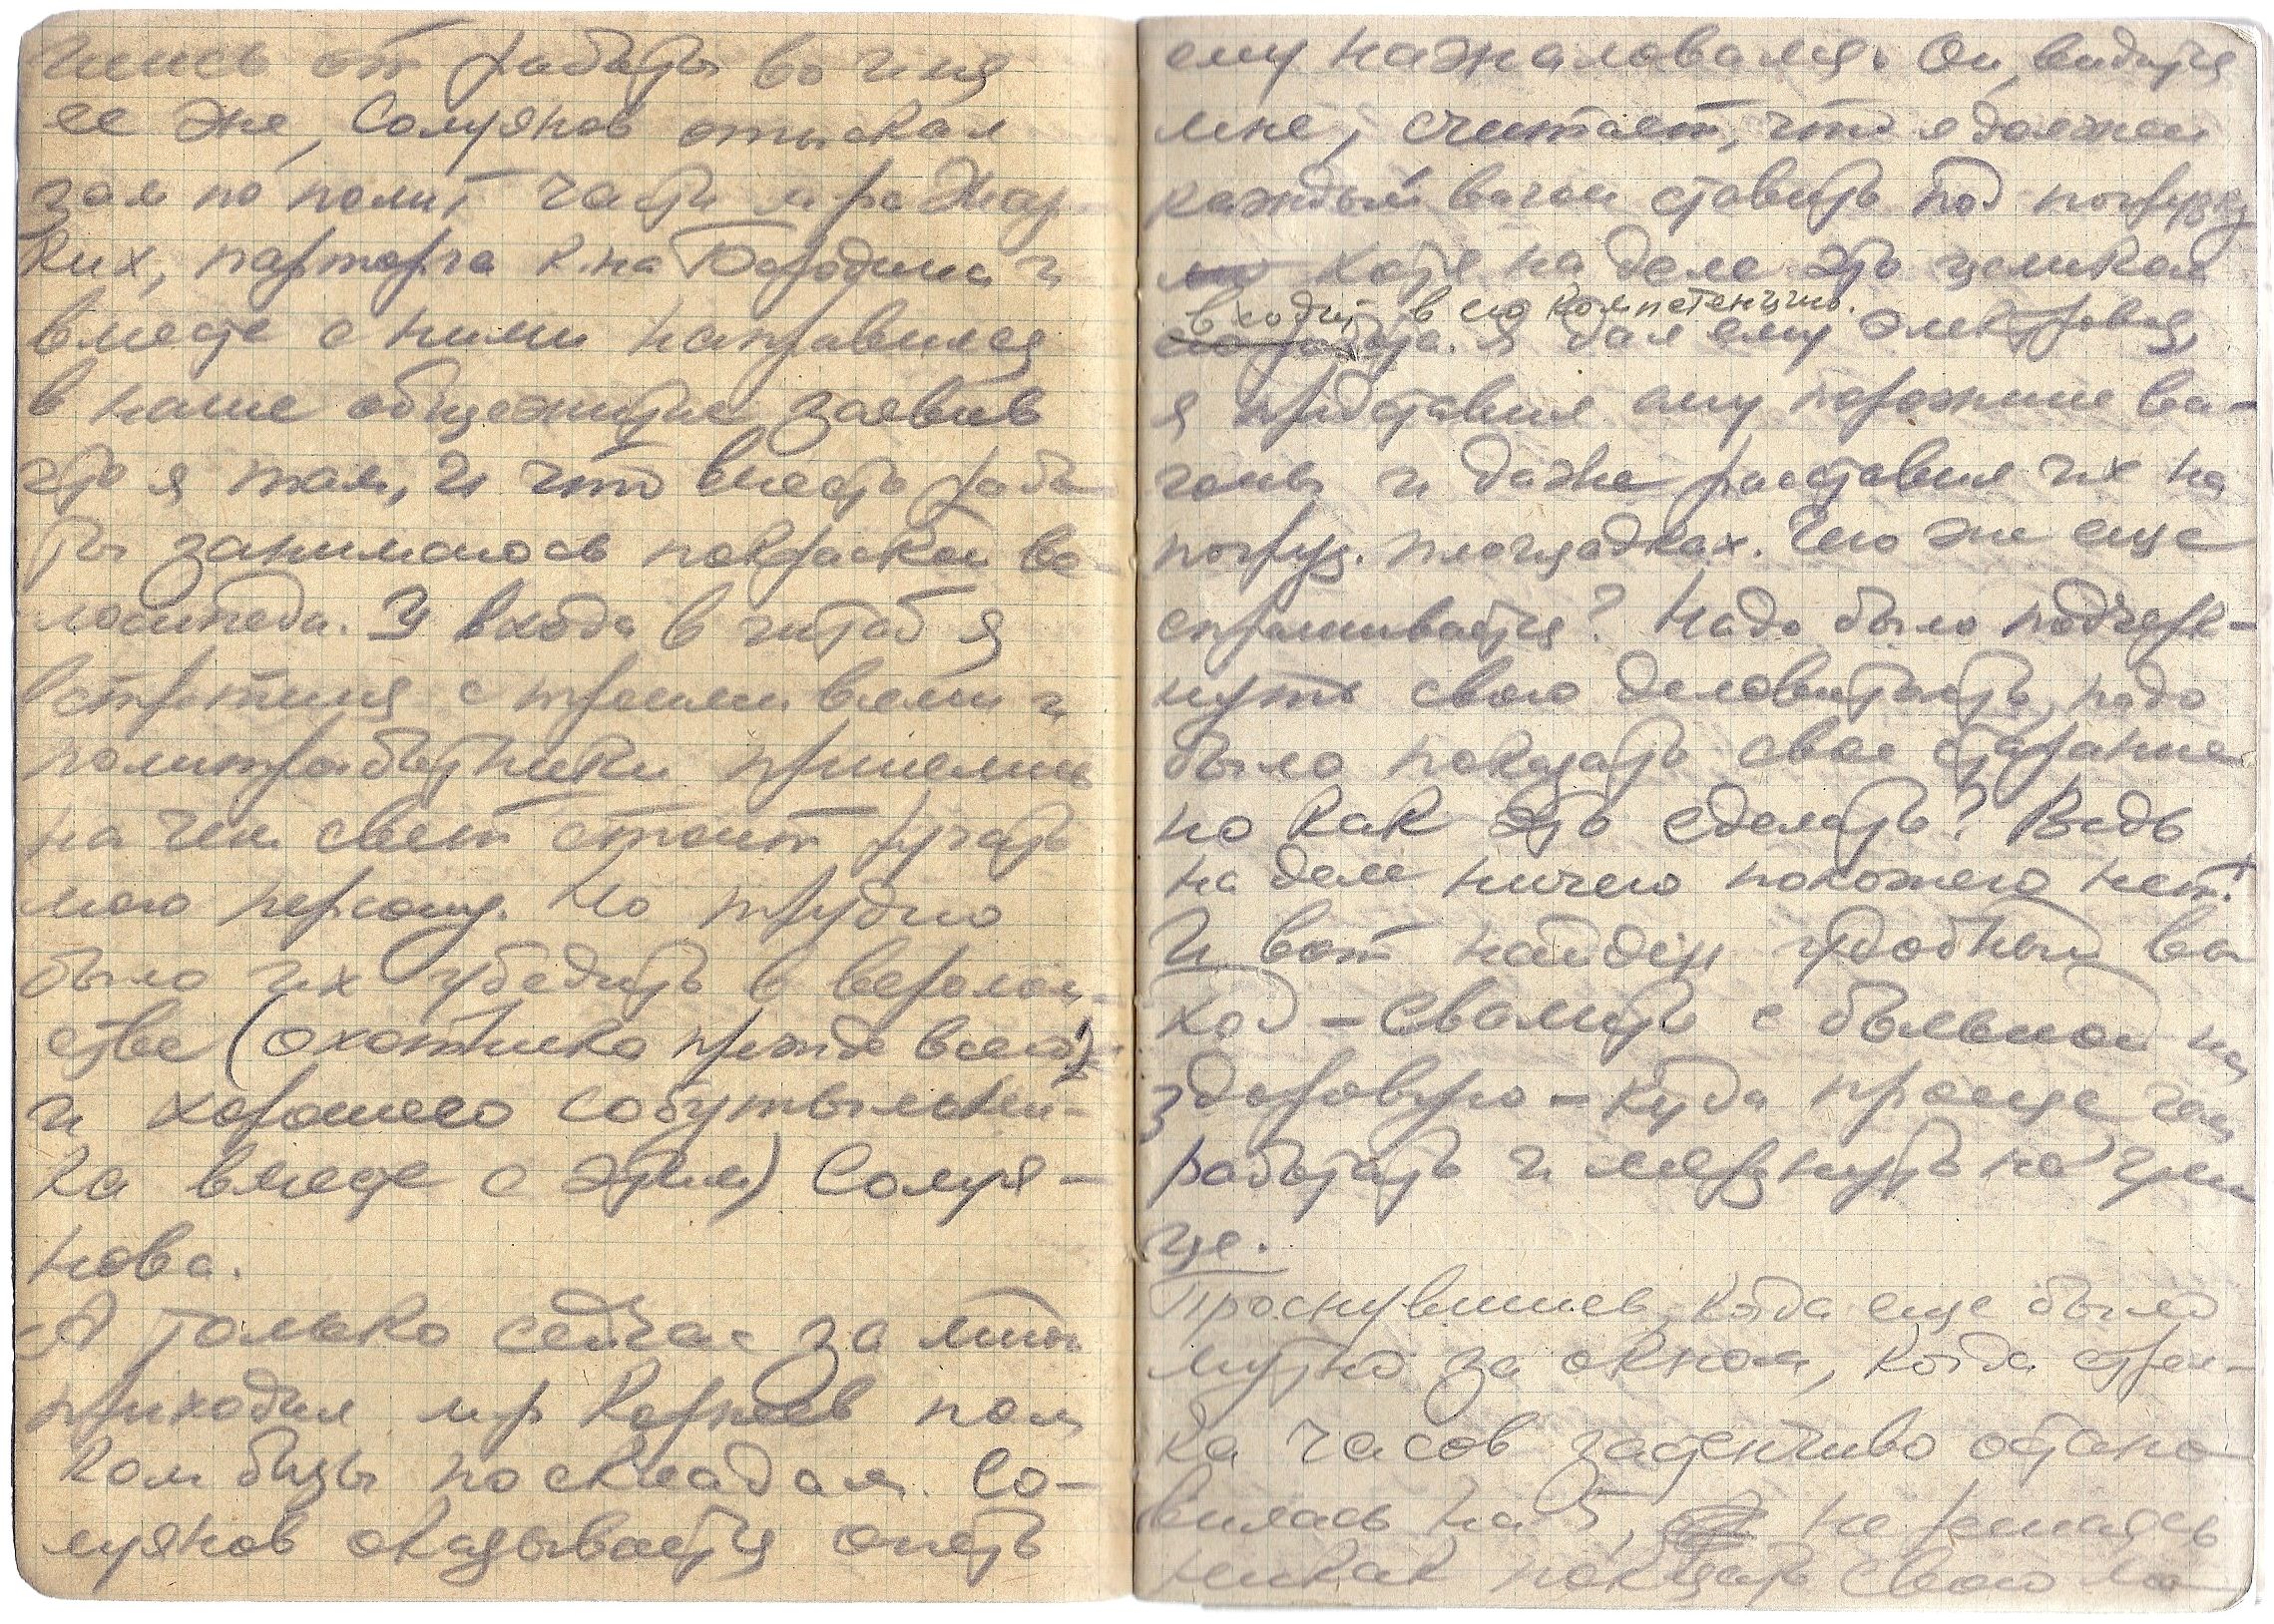 чись от работы во имя
ее же, Солуянов отыскал
зам по полит части м-ра Жар-
ких, парторга к-на Бородина и
вместе с ними направился
в наше общежитие заявив
что я там, и что вместо рабо-
ты занимаюсь покраской ве-
лосипеда. У входа в штаб я
встретился с тремя всеми и
политработники принялись
на чем свет стоит ругать
мою персону. Но трудно
было их убедить в вероломстве
стве (охотника прежде всего!)
и хорошего собутыльни-
ка вместе с этим) Солуя-
нова.
А только сейчас за мной
приходил м-р Корнеев пом
ком базы по складам. Со-
луянов оказывается опять
ему нажаловался. Он, видите
мне, считает, что я должен
каждый вагон ставить под погрузку
хотя на деле это целиком
входит в его компетенцию.
его работа. Я дал ему электровоз,
я предоставил ему порожние ва-
гоны и даже расставил их на
погруз. площадках. Чего же еще
спрашивается? Надо было подчерк-
нуть свою деловитость, надо
было показать свое старание
но как это сделать? Ведь
на деле ничего похожего нет!
И вот найден удобный вы
ход – свалить с больной на
здоровую – куда проще чем
работать и мерзнуть на ули
це.
Проснувшись, когда еще было
мутно за окном, когда стрел-
ка часов застенчиво остано
вилась на 5, не решаясь
никак показать свою